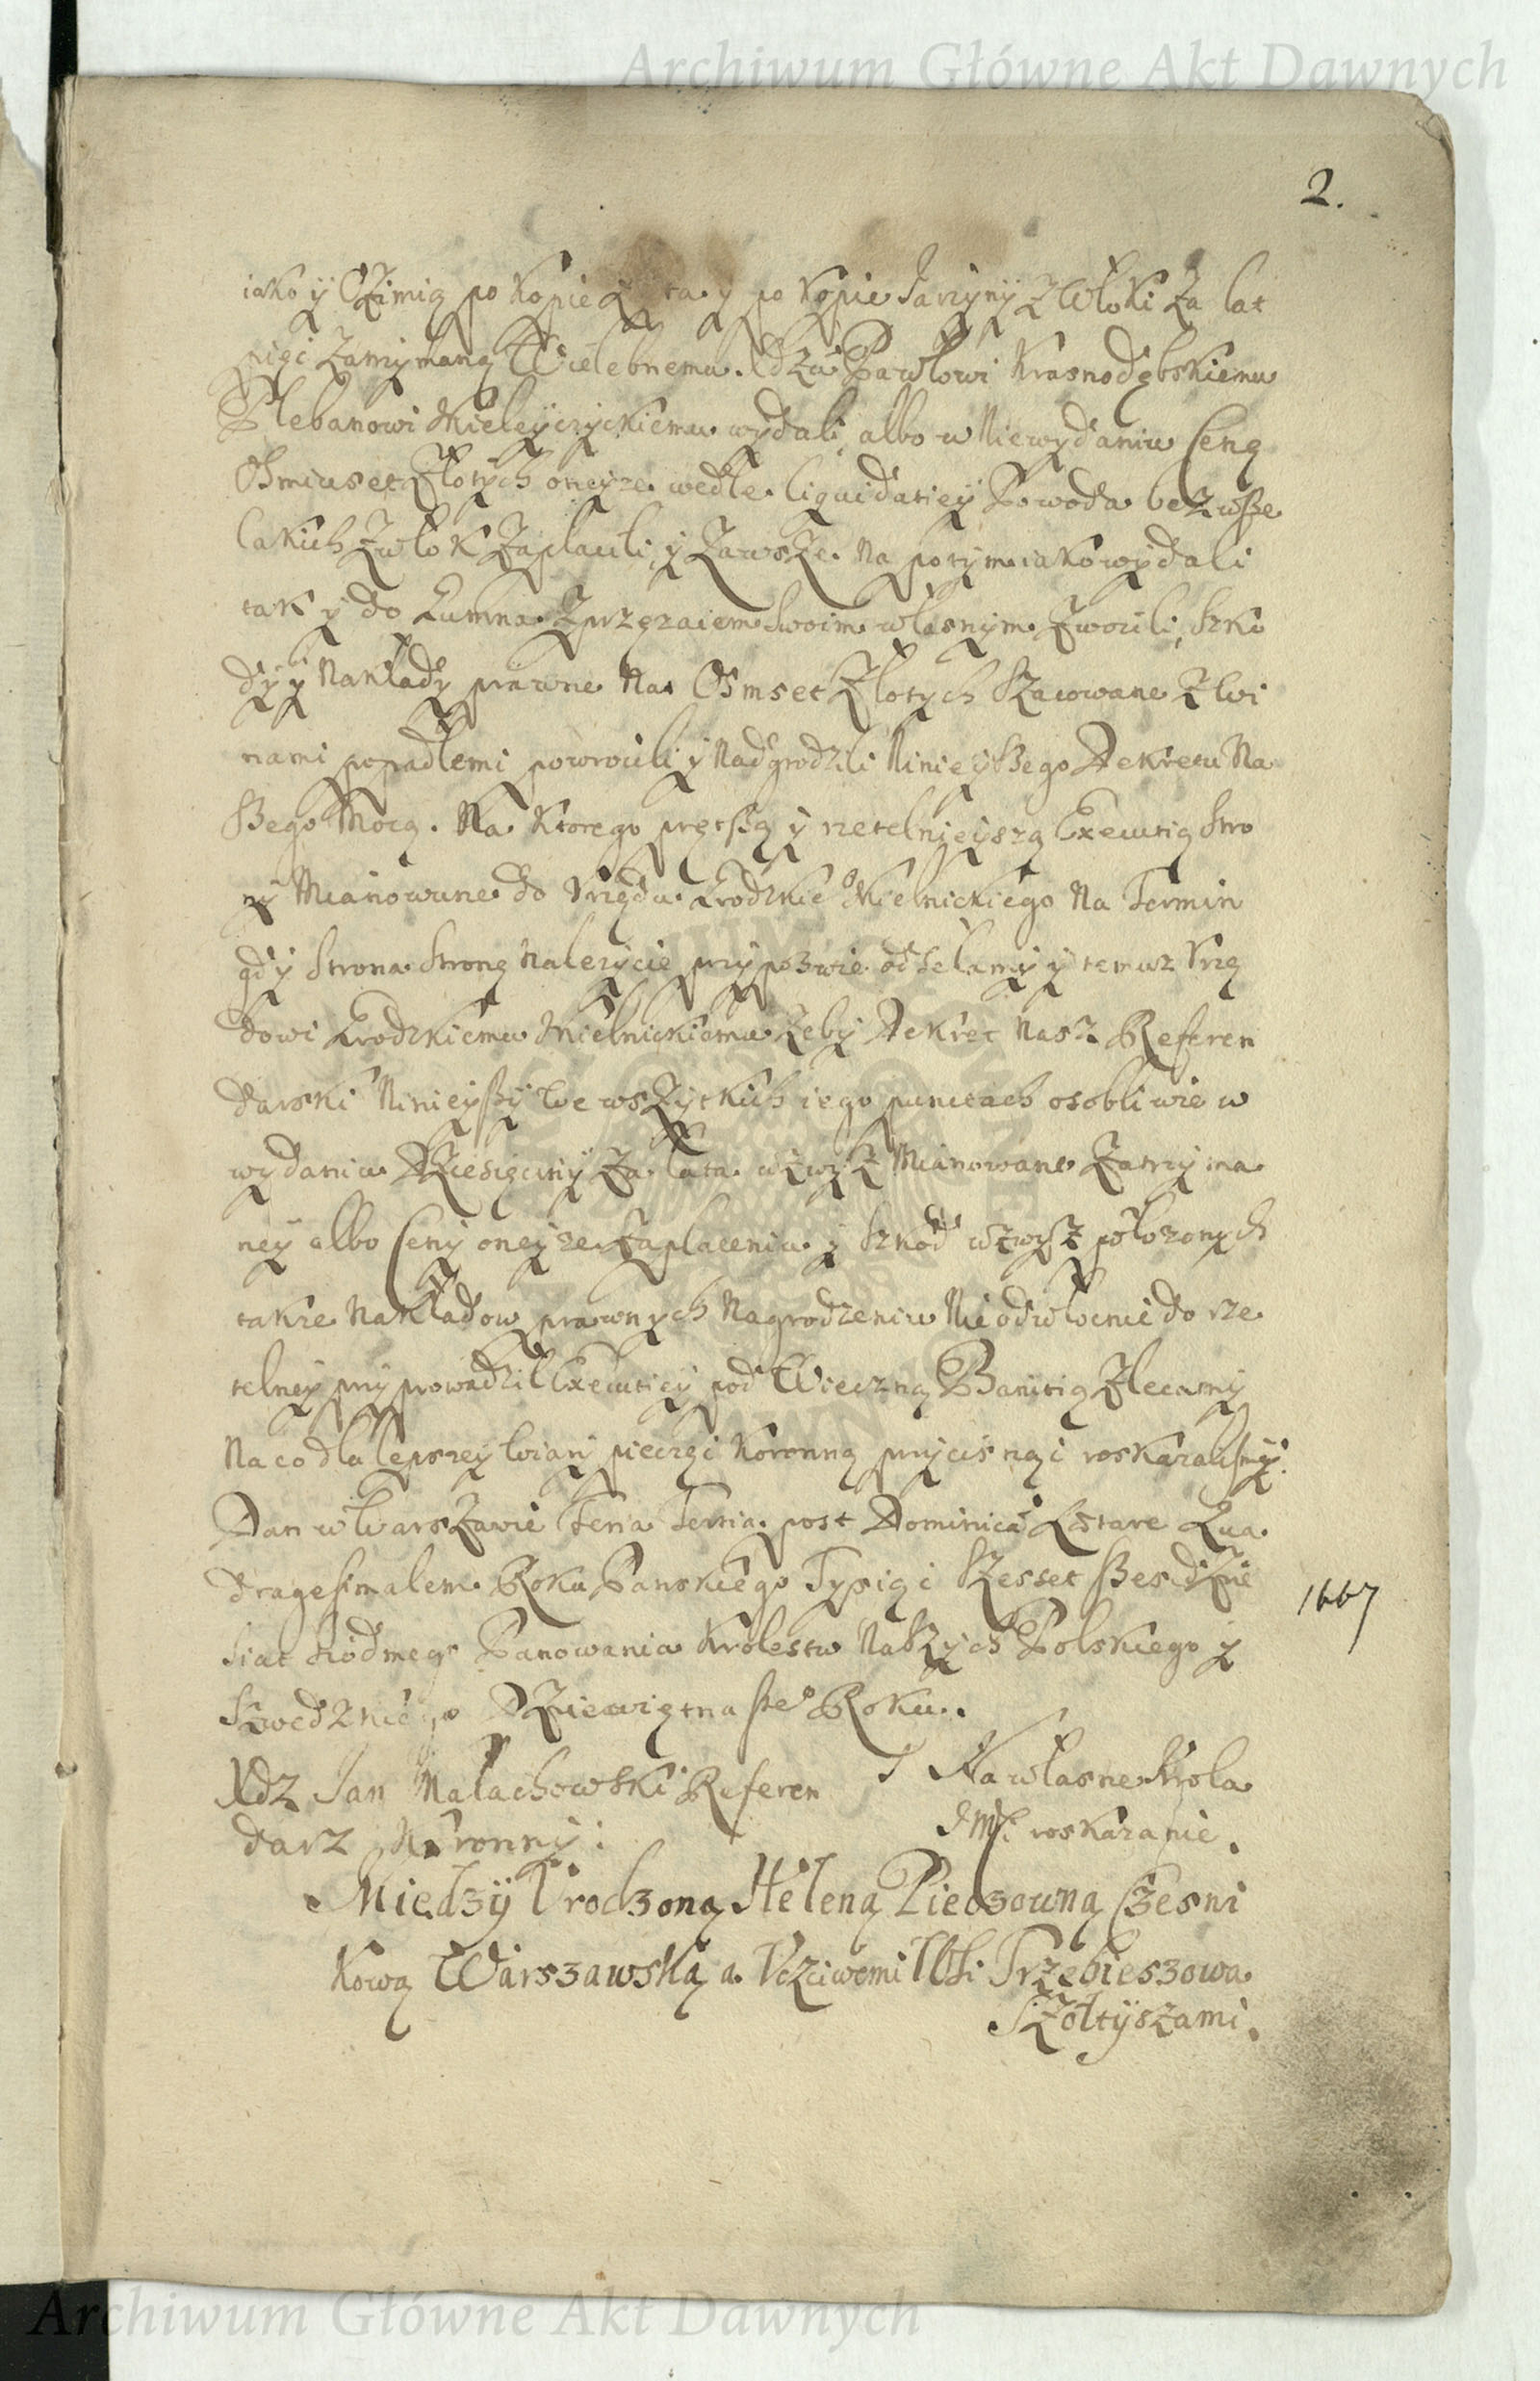 Archiwum Główne Akt Dawnych
2.
iako y Ozimią po kopie Zyta y po kopie Jarzyny z Włoki za lat
pięć zatrzymaną Wielebnemu Xdzu Pawłowi Krasnodębskiemu
Plebanowi Mieleyczyckiemu wydali, albo w Niewydaniu Cenę
Osmiuset Złotych oneyze wedle liquidatiey Powoda bez wsze
lakich zwłok zapłacili, y zawsze na potym iako wydali
tak y do Gumna zprzęzaiem swoim własnym zwozili, szko
dy y nakłady prawne na Osmset Złotych szacowane z Wi
nami popadłemi powrocili y nadgrodzili Ninieyszego Dekretu Na
szego Mocą. Na ktorego prętszą y rzetelnieyszą Executią stro
ny mianowane do Vrzędu Grodzkiego Mielnickiego na Termin
gdy strona stronę nalezycie przypozwie odselamy y temuz Vrzę
dowi Grodzkiemu Mielnickiemu zeby Dekret nasz Referen
darski Ninieyszy we wszytkich iego punctach osobliwie w
wydaniu Dziesięciny za lata wzwyż mianowane zatrzyma
ney albo Ceny oneyze zapłaceniu y szkod wzwysz połozonych
takze nakładow prawnych nagrodzeniu nieodwłocnie do rze
telney przyprowadził Executiey pod Wieczną Banitią zlecamy
Na co dla lepszey wiary pieczęć Koronną przycisnąć roskazalismy.
Dan w Warszawie Feria Tertia post Dominicā Lætare Qua
dragesimalem Roku Panskiego Tysiąc Szesset szesdzie
siąt siodmego Panowania Krolestw Naszych Polskiego y
Szwedzkiego Dziewiętnastego Roku.
1667
Xdz Jan Małachowski Referen
darz Koronny:
Na własne Krola
JMCi roskazanie.
Między Vrodzoną Heleną Pieczowną Czesni
kową Warszawską a Vczciwemi Wsi Trzebieszowa
Szołtyszami.
Archiwum Główne Akt Dawnych